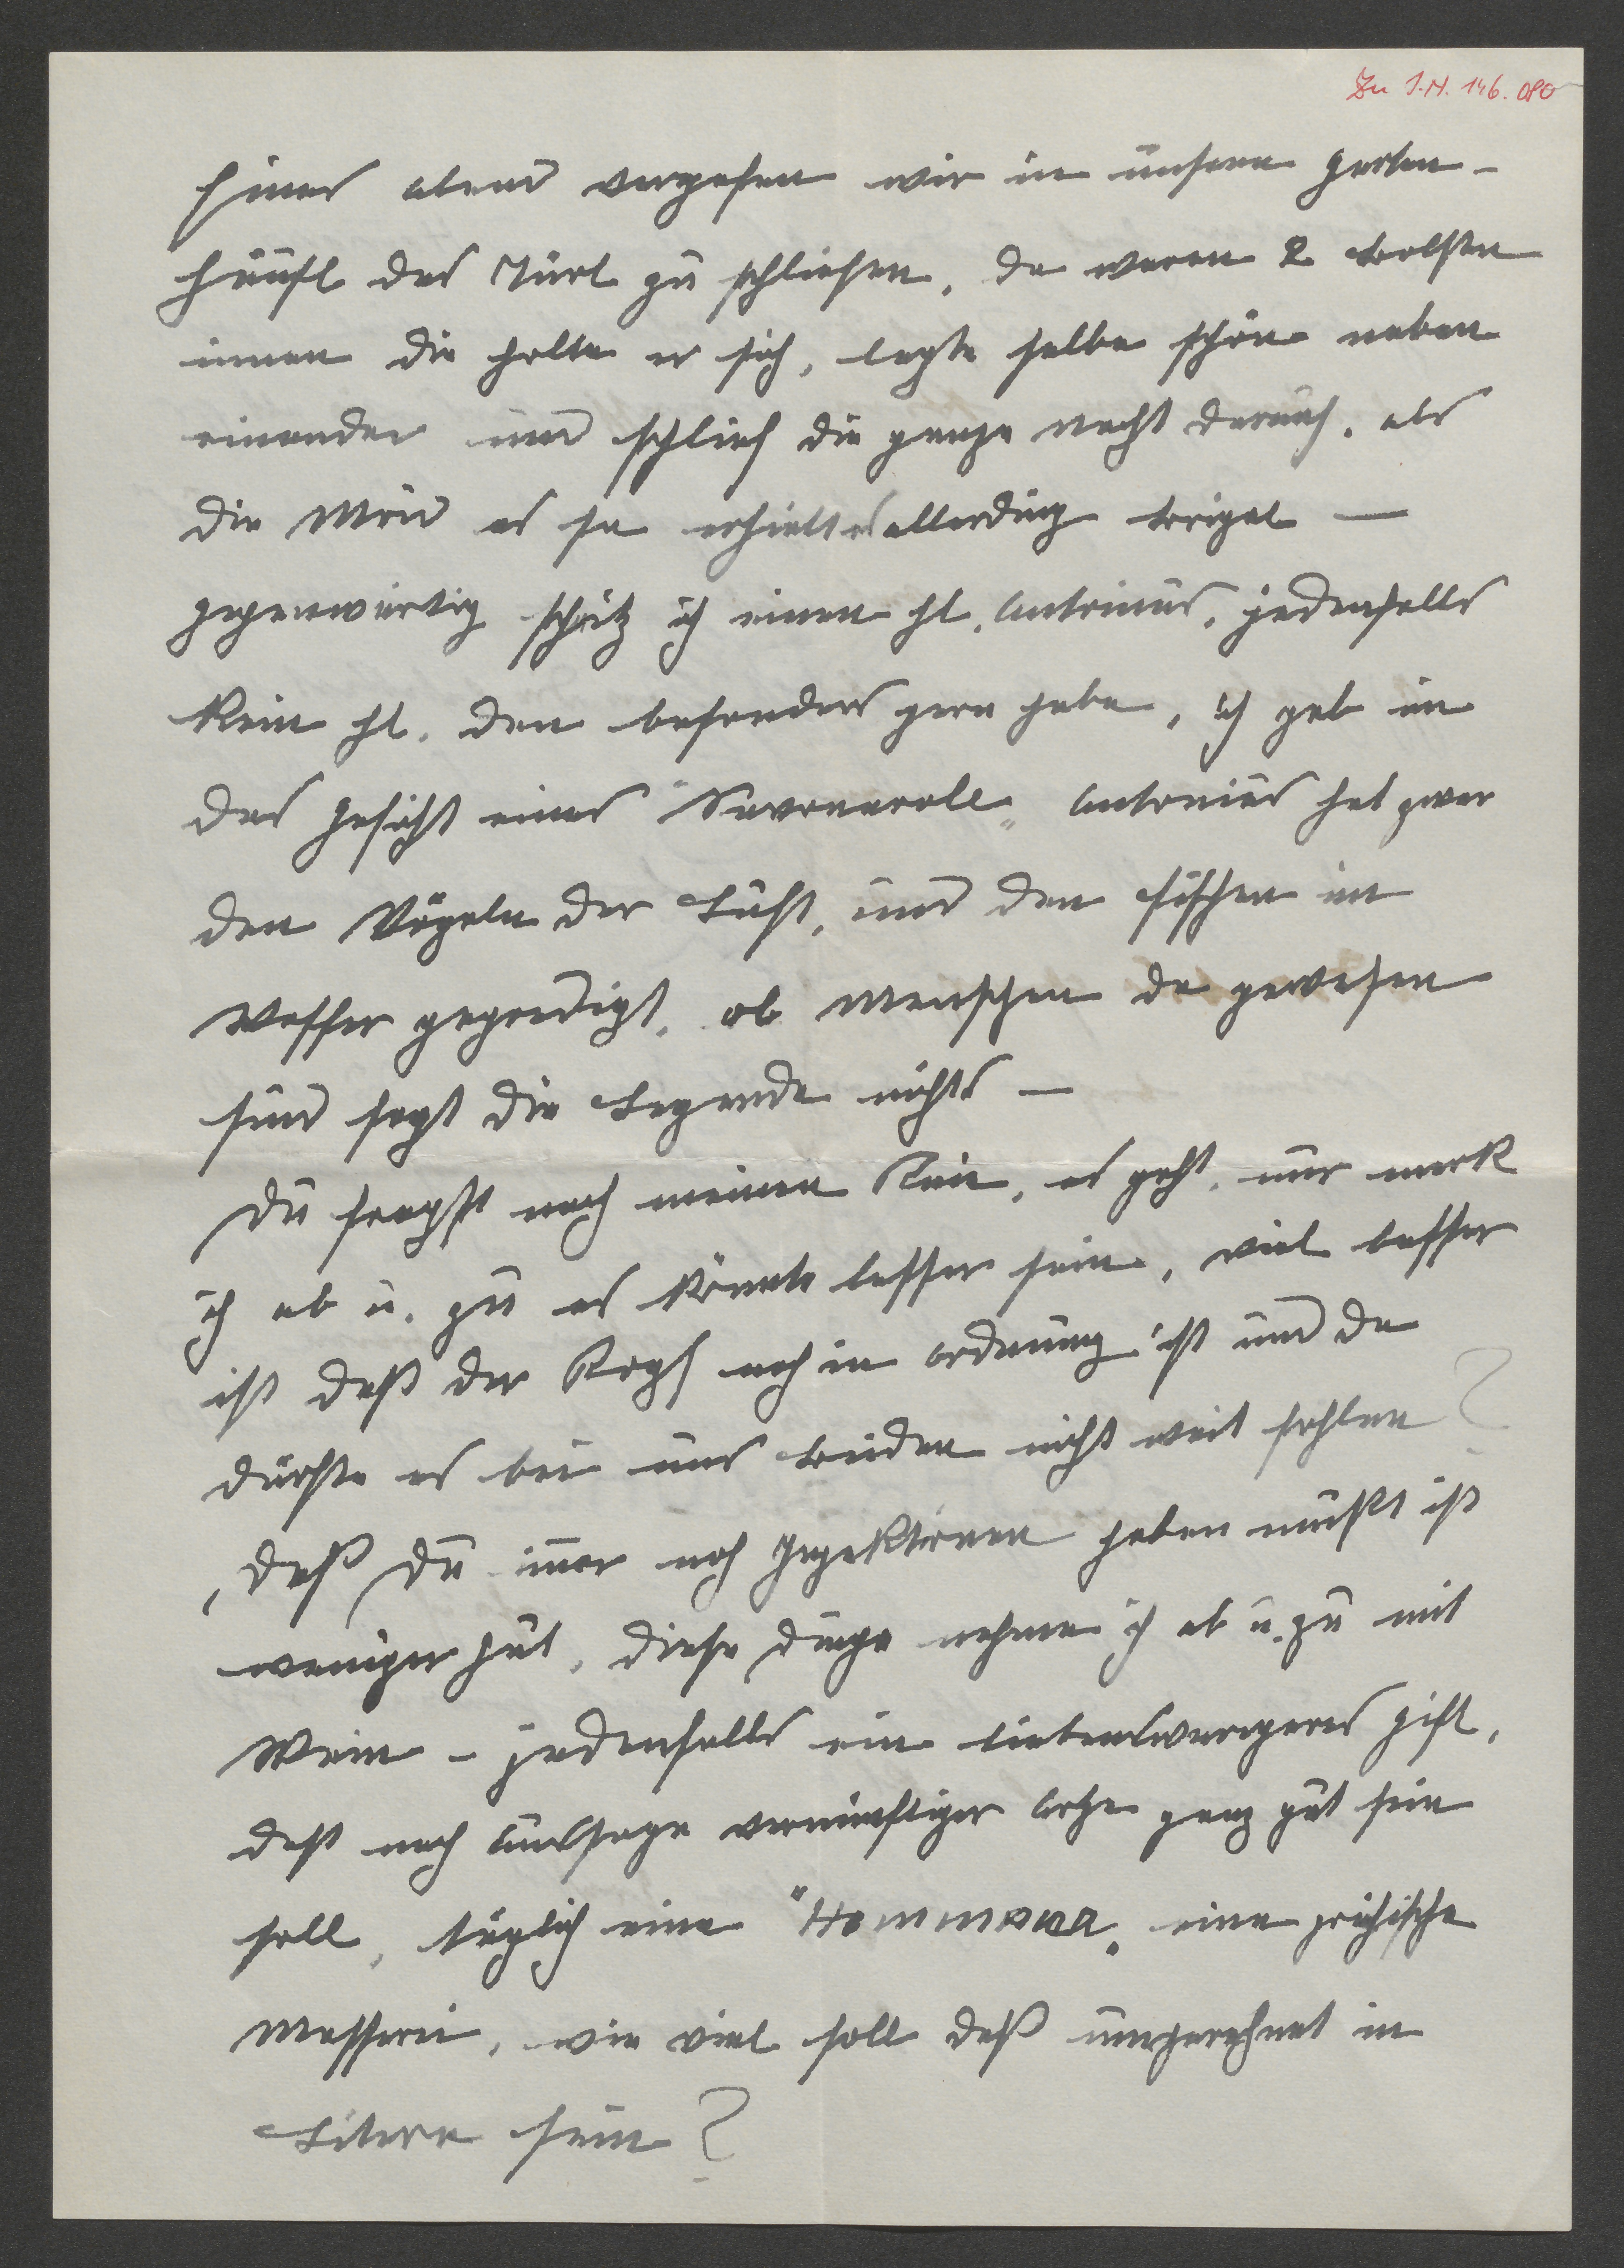 Zu I.N. 146.080
Eines abend vergasen wir in unseren garten-
häusl das Türl zu schliesen, da waren 2 bolster
innen die holte er sich, legte selbe schön neben
einander und schlief die ganze nacht darauf, als
die Maid es sa erhielt es allerding brigel —
gegenwärtig schnitz ich einen hl. Antonius, jedenfalls
kein hl. den besonders gern habe, ich geb im
das gesicht eines "Savonaroll" Antonius hat zwar
den Vögeln der Luft, und den fischen im
Wasser gepredigt, ob menschen da gewesen
sind sagt die Legende nichts —
Du fragst nach meinen Knie, es geht, nur merk
ich ab u. zu es könnte besser sein, viel besser
ist daß der Kopf noch in ordnung ist und da
dürfte es bei uns beiden nicht weit fehlen?
, daß Du imer noch Injektionen haben mußt ist
weniger gut, diese dinge nehme ich ab u. zu mit
Wein – jedenfalls ein liebenswürgeres gift,
daß nach Aussage vernünftiger ärtze ganz gut sein
soll, täglich eine "Hemmina" eine grichische
Masserei, wie viel soll daß umgerechnet in
Litern sein?